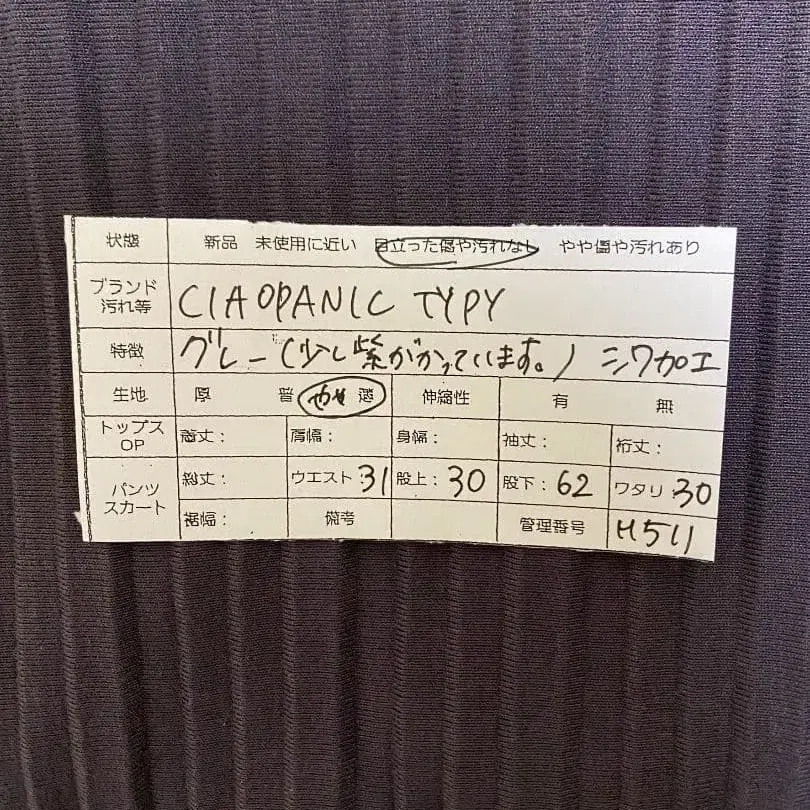 状態 新品 未使用に近い 目立った傷や汚れなし やや傷や汚れあり
ブランド
汚れ等
CIAOPANIC TYPY
特徴 グレー(少し紫がかっています。) シワ加工
生地 厚 普 やや 薄 伸縮性 有 無
トップス
OP
着丈: 肩幅: 身幅: 袖丈: 裄丈:
パンツ
スカート
総丈: ウエスト:31 股上:30 股下:62 ワタリ 30
裾幅: 備考 管理番号 H511